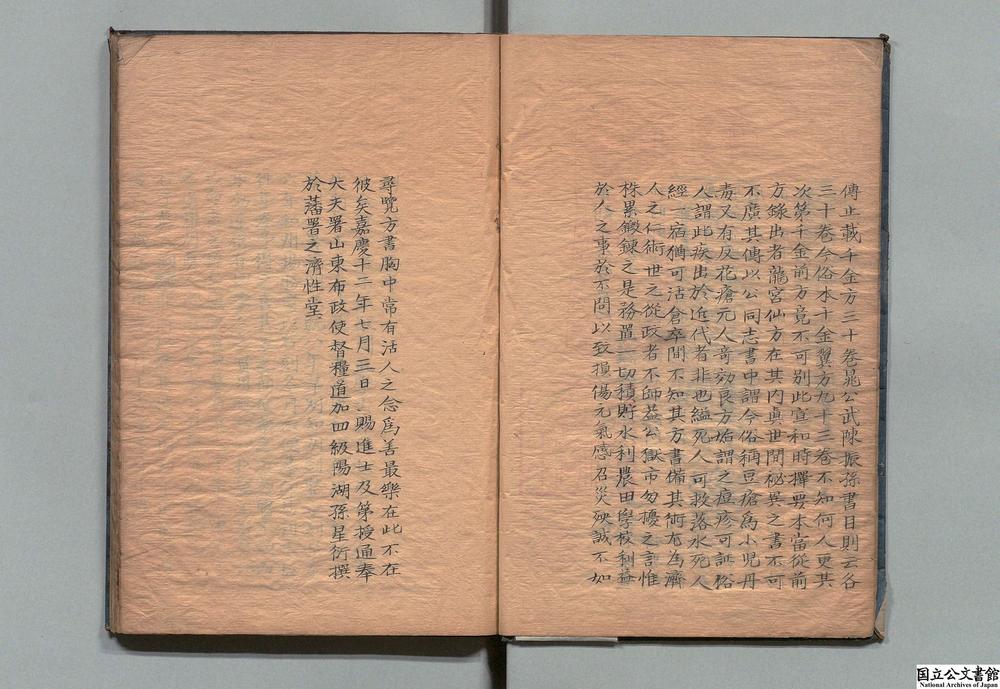 傳止載千金方三十卷晁公武陳振孫書目則云各
三十卷今俗本千金翼方九十三卷不知何人更其
次第千金前方竟不可別此宣和時擇要本當從前
方錄出者龍宮仙方在其內真世間秘異之書不可
不廣其傳以公同志書中謂今俗稱豆瘡為小兒丹
毒又有反花瘡元人奇効良方始謂之痘疹可証俗
人謂此疾出於近代者非也縊死人可救落水死人
經一宿猶可活倉卒間不知其方書備其術尤為濟
人之仁術世之從政者不師蓋公獄市勿擾之言惟
株累鍛鍊之是務置一切積貯水利農田學校利益
於人之事於不問以致損傷元氣感召災殃誠不如
尋覽方書胸中常有活人之念為善最樂在此不在
彼矣嘉慶十二年七月三日賜進士及第授通奉
大夫署山東布政使督糧道加四級陽湖孫星衍撰
於藩署之濟性堂
国立公文書館
National Archives of Japan